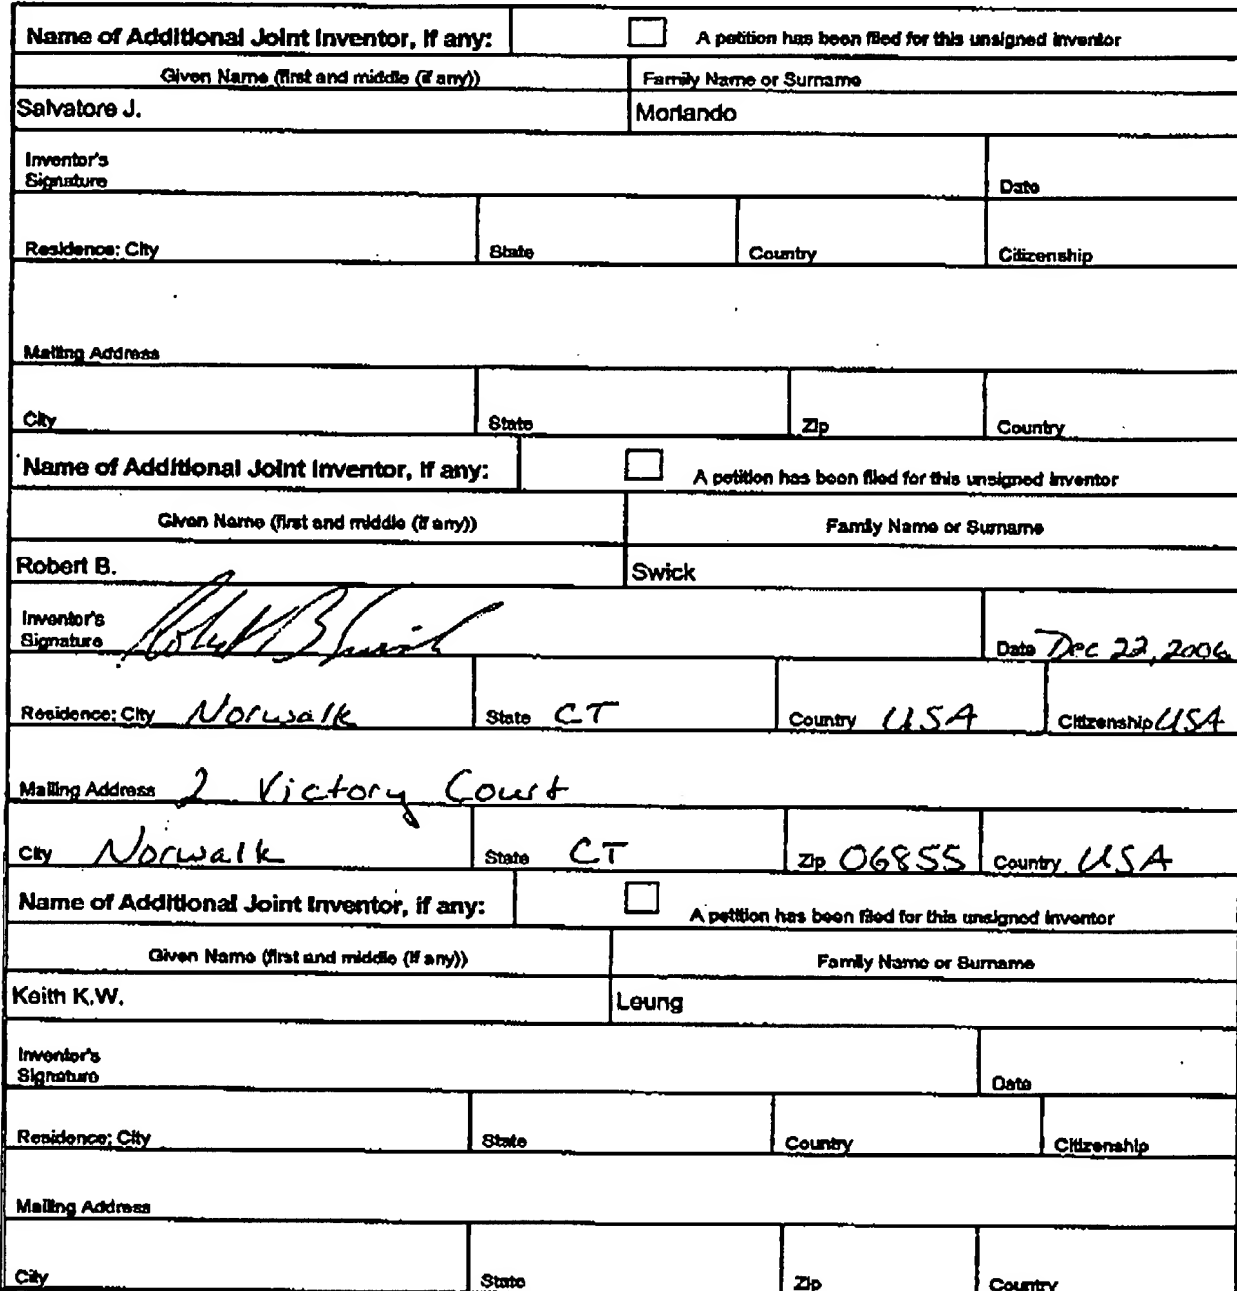 Name of Additional Joint Inventor, if any: A petition has been filed for this unsigned inventor
Given Name (first and middle (if any)) Family Name or Surname
Salvatore J. Morlando
Inventor's
Signature Date
Residence: City State Country Citizenship
Mailing Address
City State Zip Country
Name of Additional Joint Inventor, if any: A petition has been filed for this unsigned inventor
Given Name (first and middle (if any)) Family Name or Surname
Robert B. Swick
Inventor's
Signature Robert B Swick Date Dec 22, 2006
Residence: City Norwalk State CT Country USA Citizenship USA
Mailing Address 2 Victory Court
City Norwalk State CT Zip 06855 Country USA
Name of Additional Joint Inventor, if any: A petition has been filed for this unsigned inventor
Given Name (first and middle (if any)) Family Name or Surname
Keith K.W. Leung
Inventor's
Signature Date
Residence: City State Country Citizenship
Mailing Address
City State Zip Country